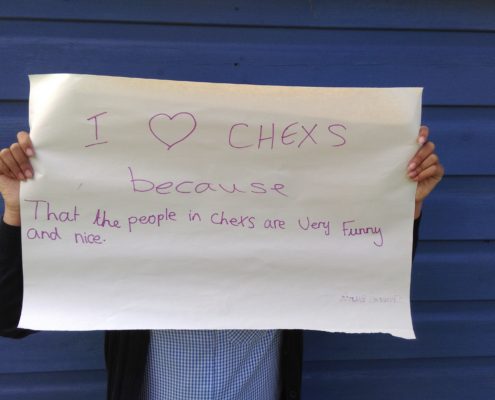 I ♡ CHEXS
because
That the people in chexs are Very Funny
and nice.